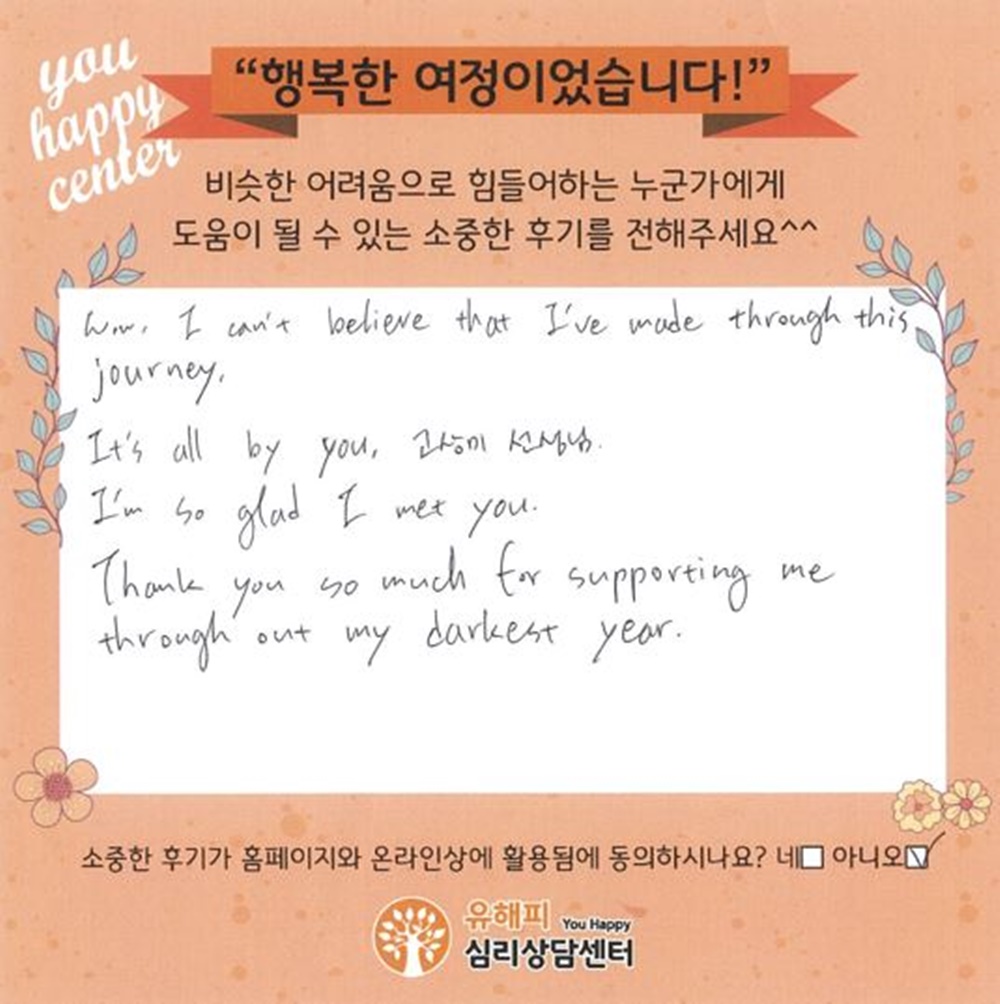 you
happy
center
“행복한 여정이었습니다!”
비슷한 어려움으로 힘들어하는 누군가에게
도움이 될 수 있는 소중한 후기를 전해주세요^^
Wow. I can't believe that I've made through this
journey.
It's all by you, 고상미 선생님.
I'm so glad I met you.
Thank you so much for supporting me
through out my darkest year.
소중한 후기가 홈페이지와 온라인상에 활용됨에 동의하시나요? 네 아니오
유해피 You Happy
심리상담센터